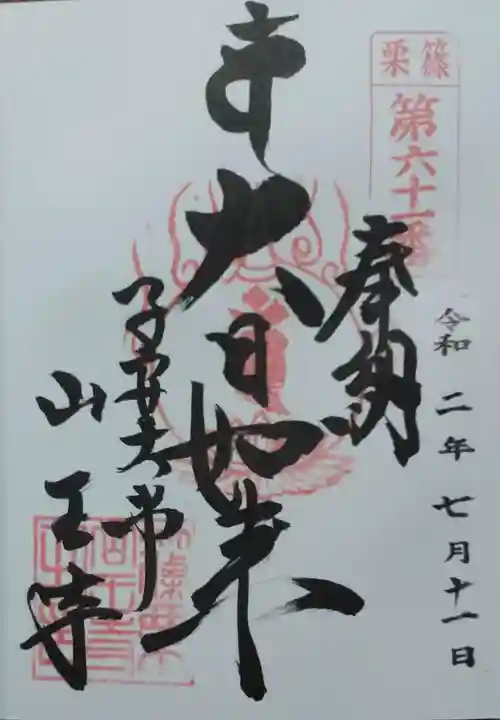 篠栗
第六十一番
令和二年七月十一日
奉納
大日如来
子安大師
山王寺